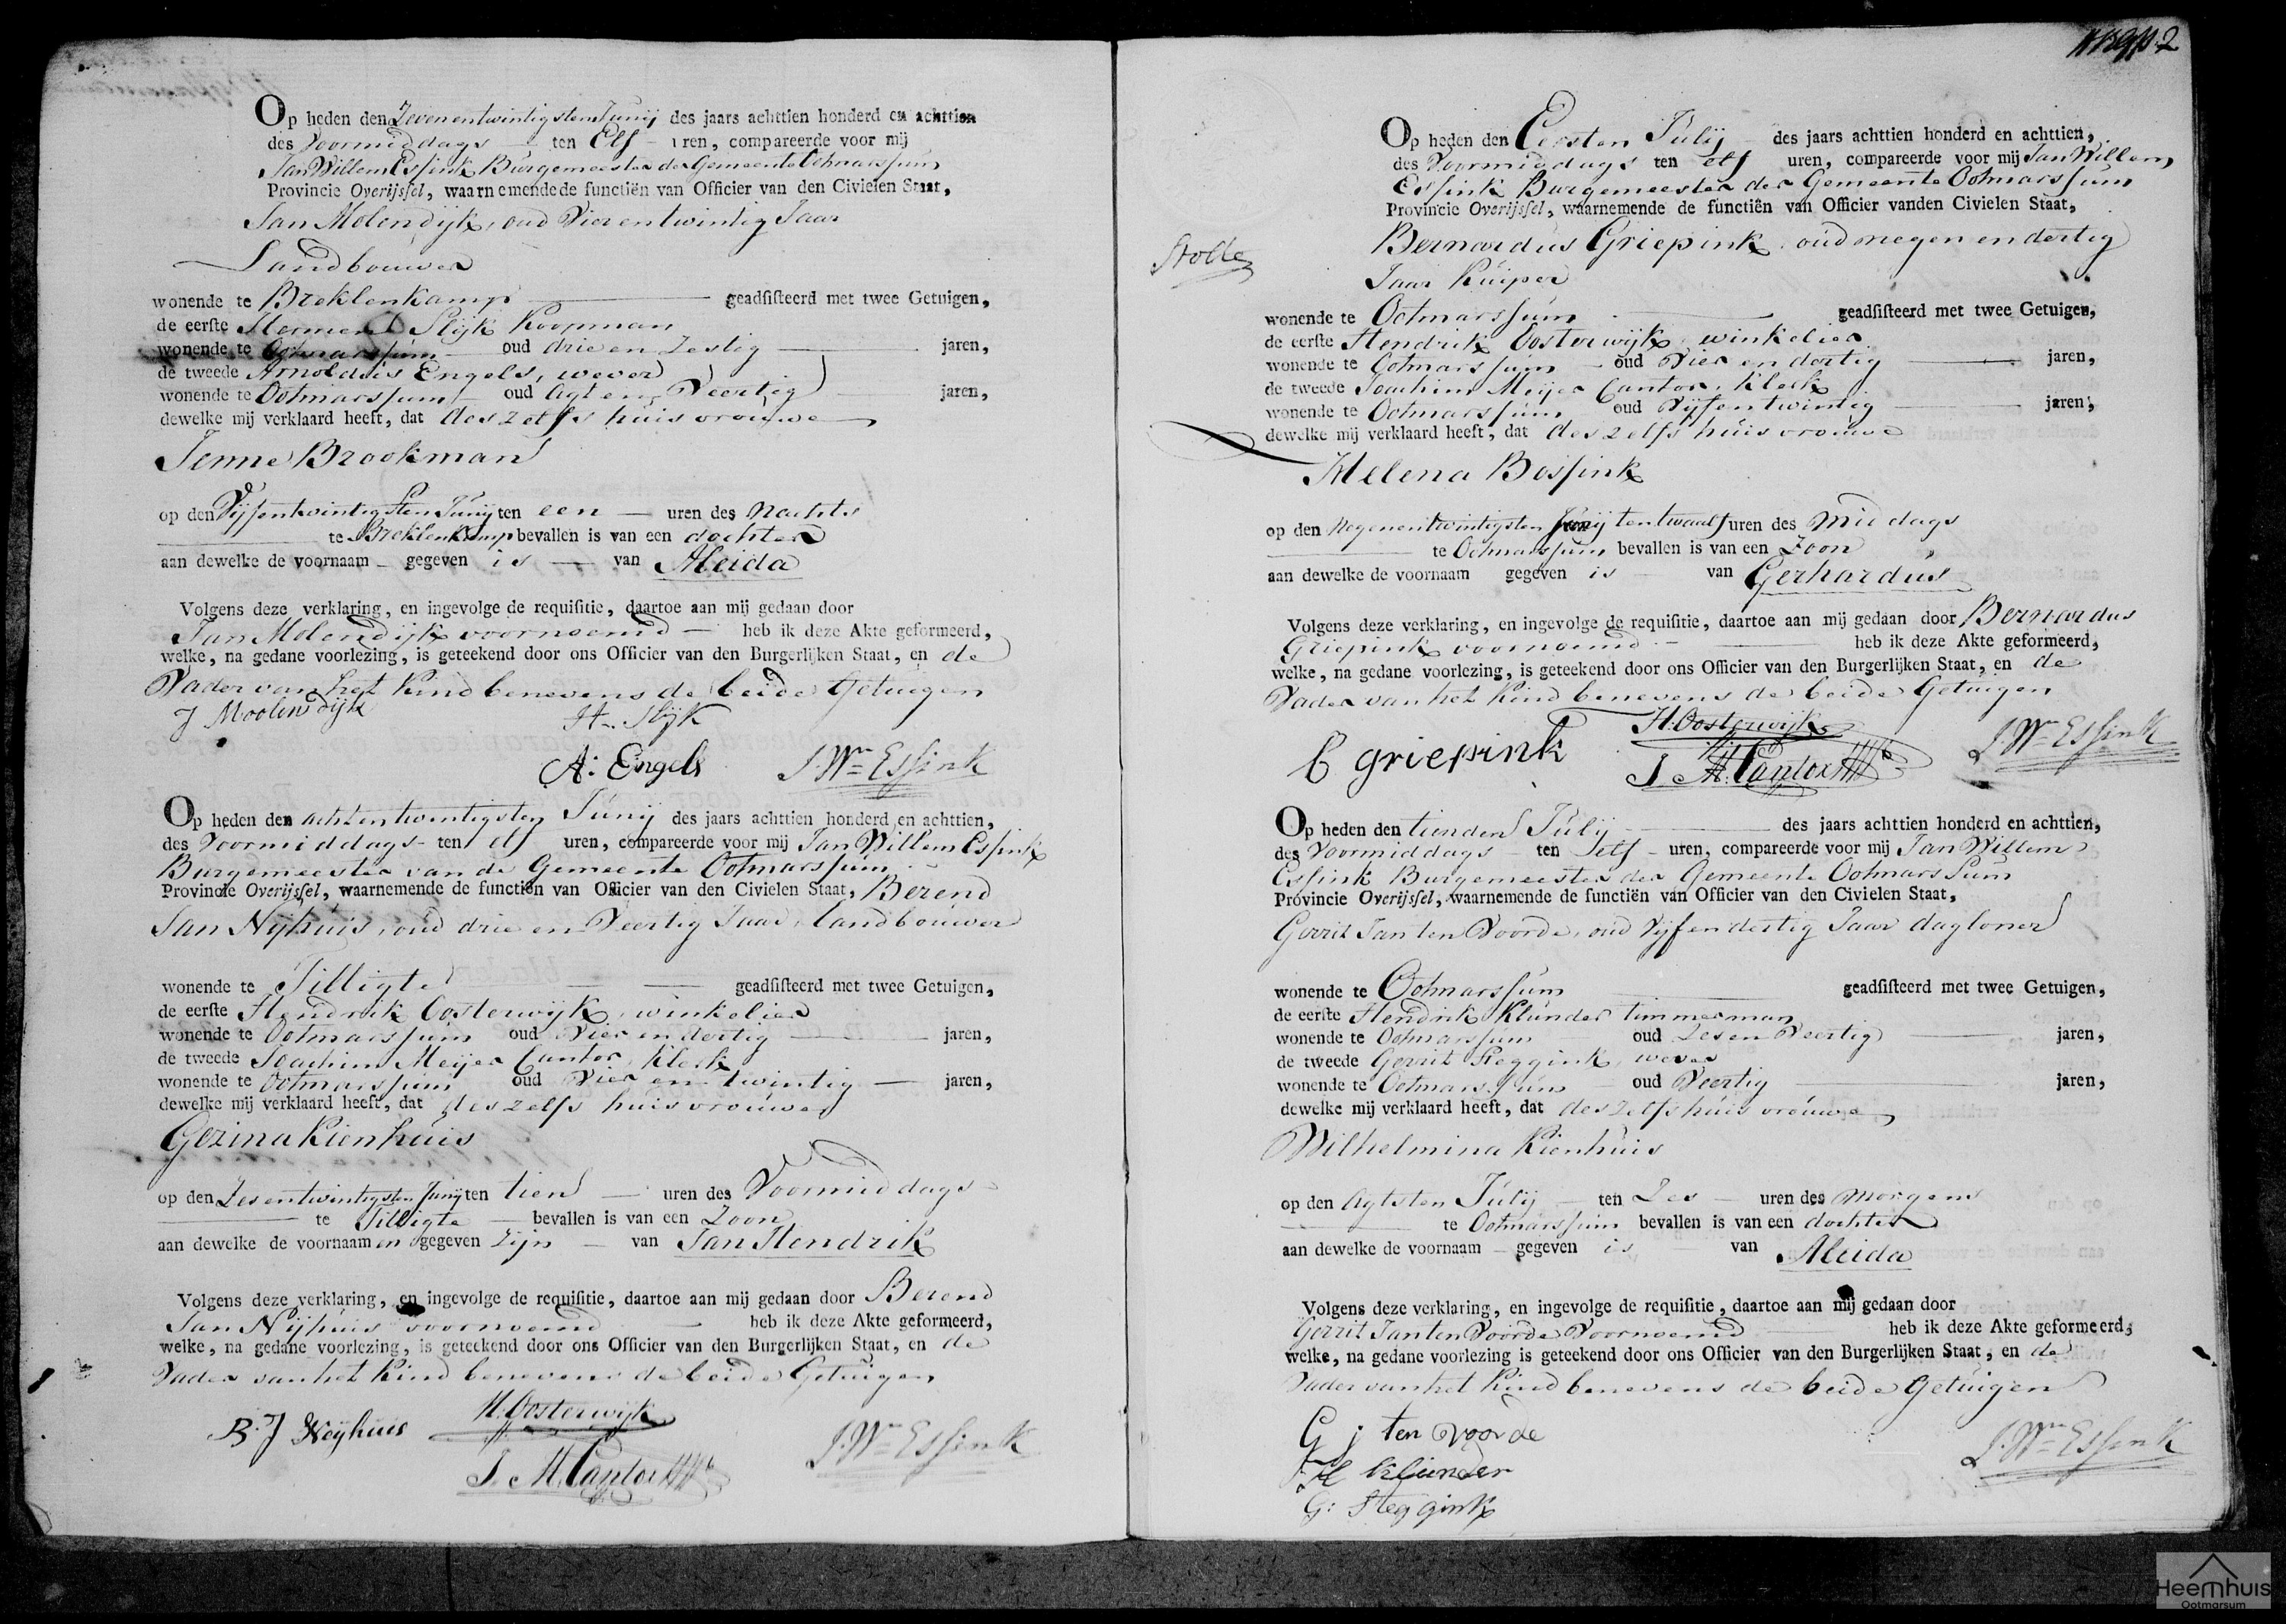 Op heden den Zevenentwintigsten Junij des jaars achttien honderd en achttien
des Voormiddags ten Elf uren, compareerde voor mij
Jan Willem Essink Burgemeester der Gemeente Ootmarssum
Provincie Overijssel, waarnemende de functiën van Officier van den Civielen Staat,
Jan Molendijk, oud Vier entwintig Jaar
Landbouwer
wonende te Breklenkamp geadsisteerd met twee Getuigen,
de eerste Slijk Koopman
wonende te Ootmarssum oud drie en Zestig jaren,
de tweede Arnoldus Engels, wever
wonende te Ootmarssum oud Agt en Veertig jaren,
dewelke mij verklaard heeft, dat deszelfs huisvrouwe
Jenne Brookman
op den Vijfentwintigsten Junij ten een uren des Nachts
te Breklenkamp bevallen is van een dochter
aan dewelke de voornaam gegeven is van Aleida
Volgens deze verklaring, en ingevolge de requisitie, daartoe aan mij gedaan door
Jan Molendijk voornoemd heb ik deze Akte geformeerd,
welke, na gedane voorlezing, is geteekend door ons Officier van den Burgerlijken Staat, en de
Vader van het Kind benevens de beide Getuigen
J Moolendijk
H. Slijk
A: Engels J. Wm Essink
Op heden den achtentwintigsten Junij des jaars achttien honderd en achttien,
des Voormiddags ten elf uren, compareerde voor mij Jan Willem Essink
Burgemeester van de Gemeente Ootmarssum
Provincie Overijssel, waarnemende de functiën van Officier van den Civielen Staat, Berend
Jan Nijhuis, oud drie en Veertig Jaar, Landbouwer
wonende te Tilligte geadsisteerd met twee Getuigen,
de eerste Hendrik Oosterwijk, winkelier
wonende te Ootmarssum oud Vier en dertig jaren,
de tweede Joachim Meijer Cantor, Klerk
wonende te Ootmarssum oud Vier en twintig jaren,
dewelke mij verklaard heeft, dat deszelfs huisvrouwe
Gezina Kienhuis
op den Zesentwintigsten Junij ten tien uren des Voormiddags
te Tilligte bevallen is van een Zoon
aan dewelke de voornaamen gegeven zijn van Jan Hendrik
Volgens deze verklaring, en ingevolge de requisitie, daartoe aan mij gedaan door Berend
Jan Nijhuis voornoemd heb ik deze Akte geformeerd,
welke, na gedane voorlezing, is geteekend door ons Officier van den Burgerlijken Staat, en de
Vader van het Kind benevens de beide Getuigen
B. J Neyhuis H: Oosterwijk
J. M. Cantor J. Wm Essink
2
Op heden den Eersten Julij des jaars achttien honderd en achttien,
des Voormiddags ten elf uren, compareerde voor mij Jan Willem
Essink Burgemeester der Gemeente Ootmarssum
Provincie Overijssel, waarnemende de functiën van Officier vanden Civielen Staat,
Bernardus Griepink, oud negen en dertig
Stolte
Jaar Kuiper
wonende te Ootmarssum geadsisteerd met twee Getuigen,
de eerste Hendrik Oosterwijk, winkelier
wonende te Ootmarssum oud Vier en dertig jaren,
de tweede Joachim Meijer Cantor, Klerk
wonende te Ootmarssum oud Vijfentwintig jaren,
dewelke mij verklaard heeft, dat deszelfs huisvrouwe
Helena Bossink
op den Negenentwintigsten Junij ten twaalf uren des Middags
te Ootmarssum bevallen is van een Zoon
aan dewelke de voornaam gegeven is van Gerhardus
Volgens deze verklaring, en ingevolge de requisitie, daartoe aan mij gedaan door Bernardus
Griepink voornoemd heb ik deze Akte geformeerd,
welke, na gedane voorlezing, is geteekend door ons Officier van den Burgerlijken Staat, en de
Vader van het Kind benevens de beide Getuigen
B griepink H: Oosterwijk J. Wm Essink
J. M. Cantor
Op heden den tienden Julij des jaars achttien honderd en achttien,
des Voormiddags ten elf uren, compareerde voor mij Jan Willem
Essink Burgemeester der Gemeente Ootmarssum
Provincie Overijssel, waarnemende de functiën van Officier van den Civielen Staat,
Gerrit Jan ten Voorde, oud Vijf en dertig Jaar dagloner
wonende te Ootmarssum geadsisteerd met twee Getuigen,
de eerste Hendrik Klunder timmerman
wonende te Ootmarssum oud Zes en Veertig jaren,
de tweede Gerrit Steggink, wever
wonende te Ootmarssum oud Veertig jaren,
dewelke mij verklaard heeft, dat deszelfs huisvrouwe
Wilhelmina Kienhuis
op den Agtsten Julij ten Zes uren des Morgens
te Ootmarssum bevallen is van een dochter
aan dewelke de voornaam gegeven is van Aleida
Volgens deze verklaring, en ingevolge de requisitie, daartoe aan mij gedaan door
Gerrit Jan ten Voorde Voornoemd heb ik deze Akte geformeerd,
welke, na gedane voorlezing is geteekend door ons Officier van den Burgerlijken Staat, en de
Vader van het Kind benevens de beide Getuigen
G j ten voorde
H klunder J. Wm Essink
G: Steggink
Heemhuis
Ootmarsum